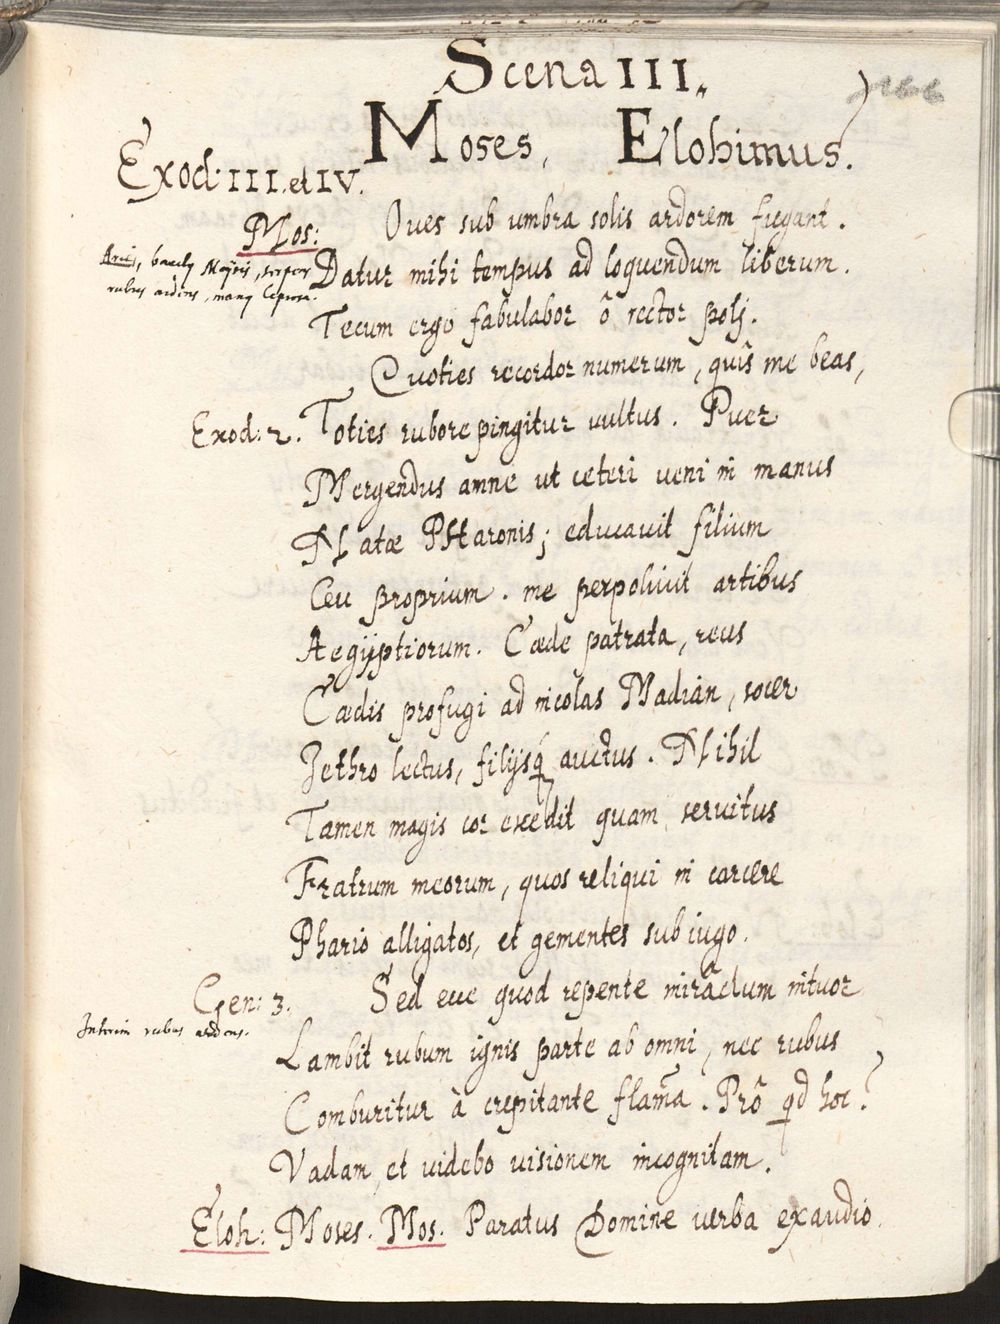 Scena III.
166
Moses, Elohimus.
Exod: III. et IV.
Mos: Oves sub umbra solis ardorem fugant.
Datur mihi tempus ad loquendum liberum.
rubus ardens, manus leprosa.
Tecum ergo fabulabor ô rector polj.
Quoties recordor numerum, quîs me beas,
Exod: 2. Toties rubore pingitur vultus. Puer
Mergendus amne ut ceteri veni in manus
Natæ PHaronis; educavit filium
Ceu proprium. me perpolivit artibus
Aegÿptiorum. Cæde patrata, reus
Cædis profugi ad incolas Madian, socer
Jethro lectus, filijsq́ auctus. Nihil
Tamen magis cor exedit quam servitus
Fratrum meorum, quos reliqui in carcere
Phario alligatos, et gementes sub iugo.
Gen: 3. Sed ecce quod repente mirâclum intuor
Interim rubus ardens.
Lambit rubum ignis parte ab omni, nec rubus
Comburitur à crepitante flam̄a. Prô qd hoc?
Vadam, et videbo visionem incognitam.
Eloh: Moses. Mos. Paratus Domine verba exaudio.